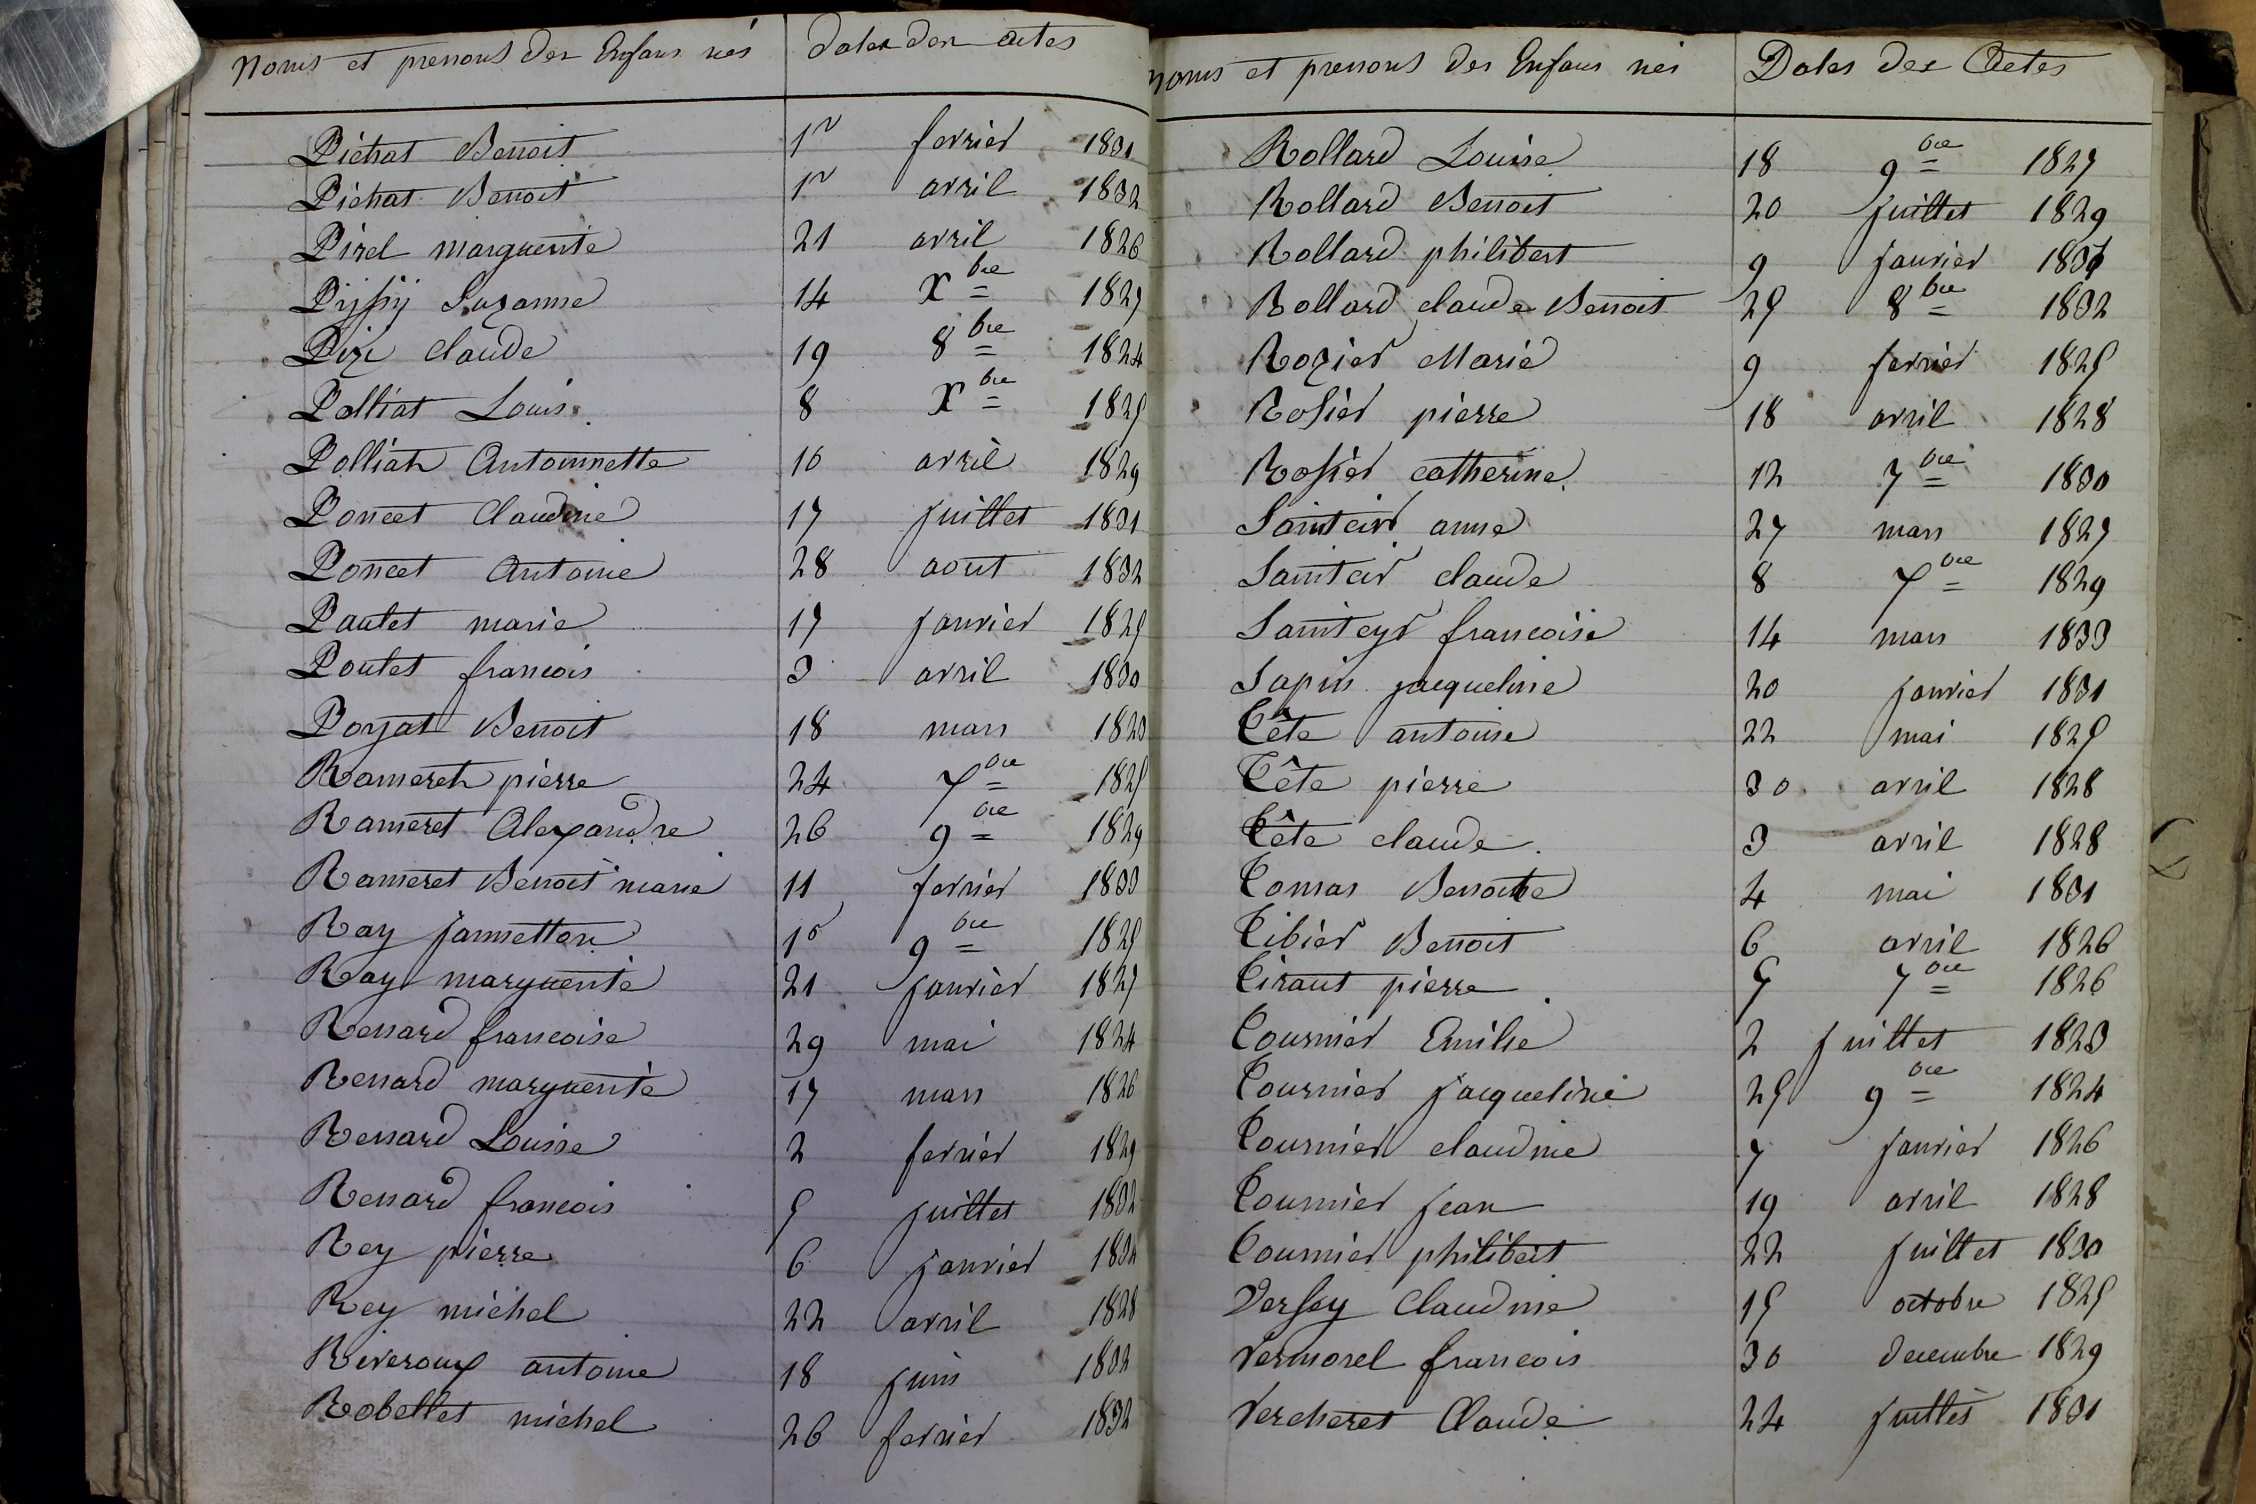 Noms et prenoms der Enfans nés dates der actes
Pichat Benoit 1er fevrier 1831
Pichat Benoit 1er avril 1832
Pirel marguerite 21 avril 1826
Suzanne 14 Xbre 1827
claude 19 8bre 1824
Polliat Louis 8 Xbre 1825
Polliat Antoinnette 16 avril 1829
Poncet Claudine 17 juillet 1831
Poncet Antoine 28 aout 1832
Pautet marie 17 janvier 1825
Poulet francois 3 avril 1830
Poyat Benoit 18 mars 1823
Rameret pierre 24 7bre 1825
Rameret Alexandre 26 9bre 1829
Rameret Benoit marie 11 fevrier 1833
Ray jannetton 10 9bre 1825
Ray marguerite 21 janvier 1827
Renard francoise 29 mai 1824
Renard marguerite 17 mars 1826
Renard Louise 2 fevrier 1829
Renard francois 5 juillet 1832
Rey pierre 6 janvier
Rey michel 22 avril 1828
Riveroux antoine 18 juin 1832
Robellet michel 26 fevrier 1832
noms et prenoms des Enfans nes Dates des Actes
Rollard Louise 18 9bre 1827
Rollard Benoit 20 juillet 1829
Rollard philibert 9 janvier
Rollard claude Benoit 25 8bre 1832
Rozier Marie 9 fevrier 1825
Rosier pierre 18 avril 1828
Rosier catherine 12 7bre 1830
Sainteir anne 27 mars 1827
Sainteir claude 8 7bre 1829
Sainteyr francoise 14 mars 1833
Sapin jacqueline 20 janvier 1831
Tête antoine 22 mai 1825
Tête pierre 30 avril 1828
Tête claude 3 avril 1828
Tomas Benoite 4 mai 1831
Tibier Benoit 6 avril 1826
Tiraut pierre 5 7bre 1826
Tournier Emilie 2 juillet 1823
Tournier jacqueline 25 9bre 1824
Tournier claudine 7 janvier 1826
Tournier jean 19 avril 1828
Tournier philibert 22 juillet 1830
Versey Claudine 15 octobre 1825
Vermorel francois 30 decembre 1829
Vercheret Claude 24 juillet 1831